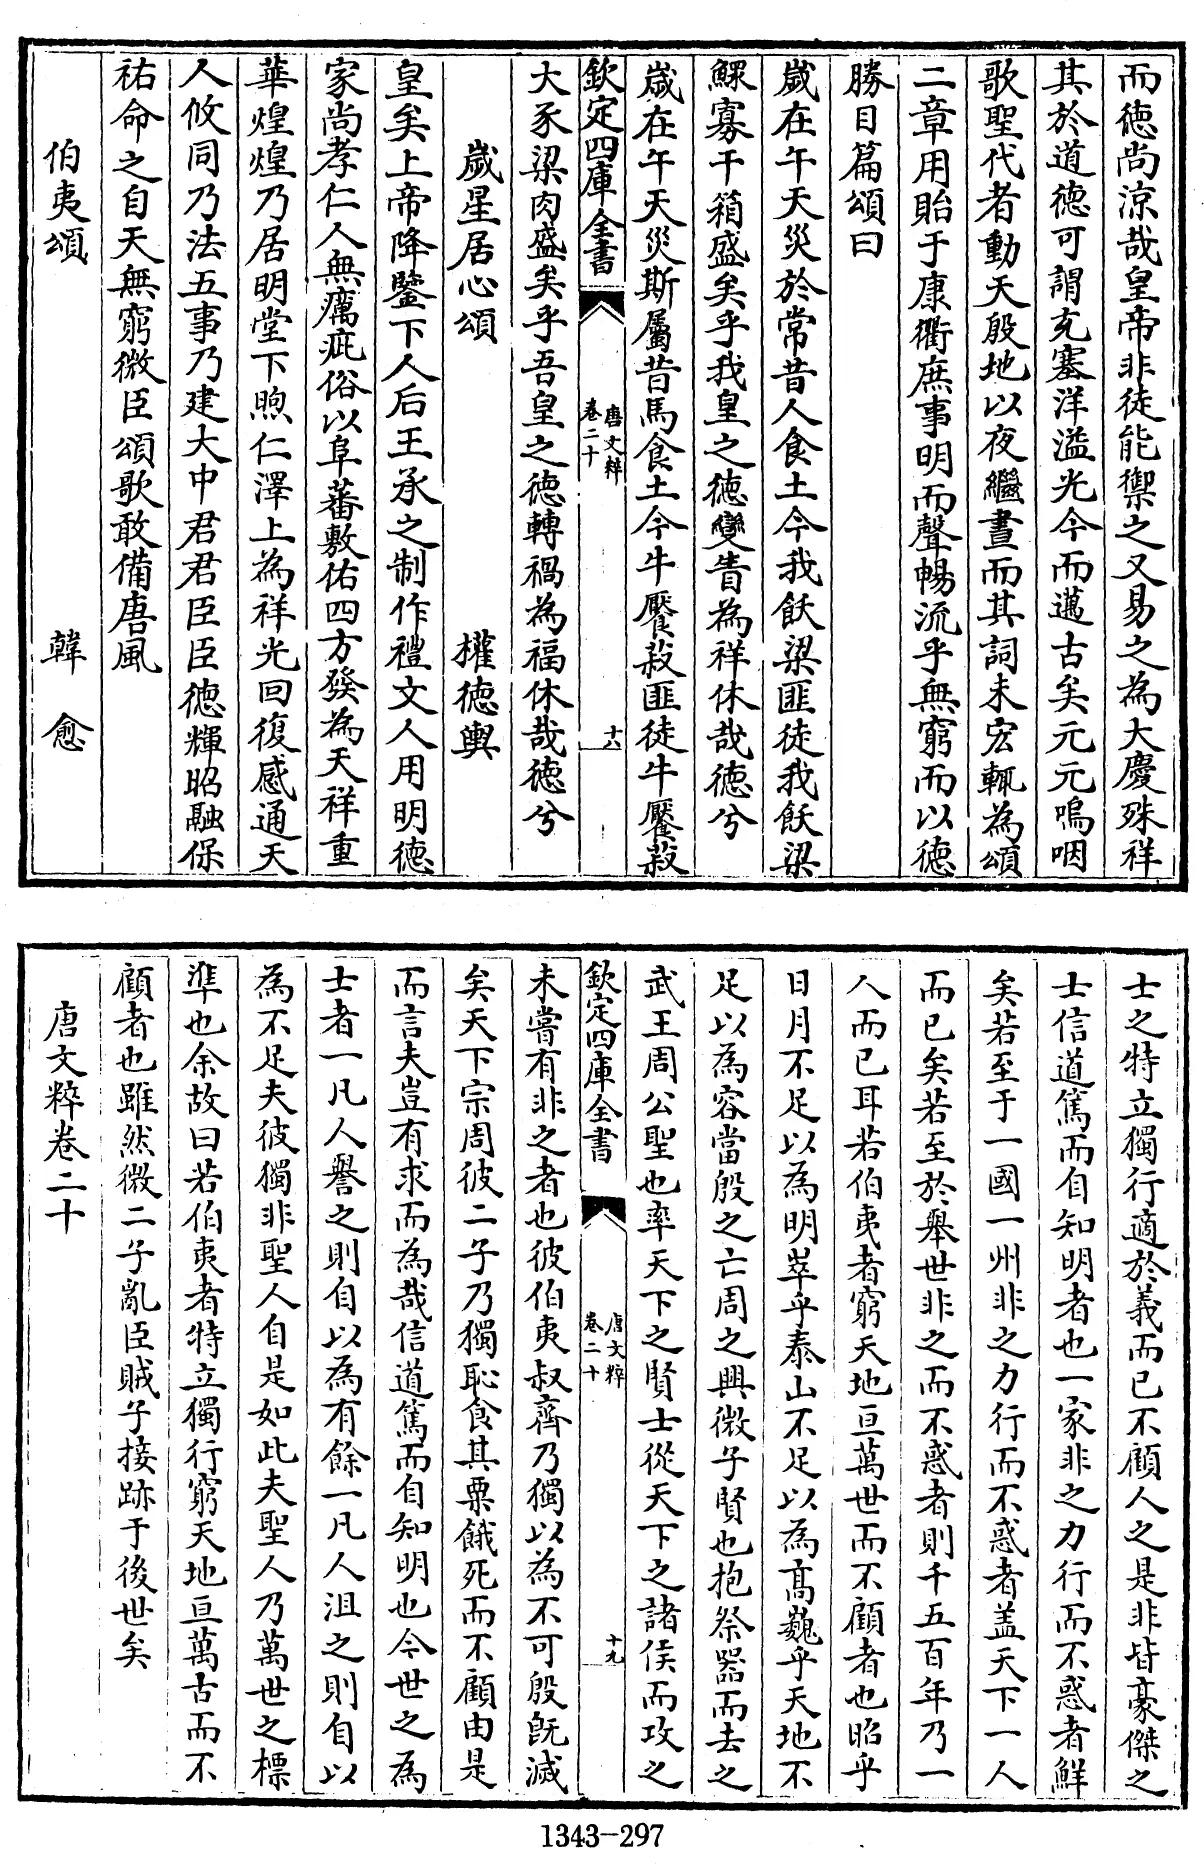 而德尚涼哉皇帝非徒能禦之又易之為大慶殊祥
其於道德可謂充塞洋溢光今而邁古矣元元嗚咽
歌聖代者動天殷地以夜繼晝而其詞未宏輒為頌
二章用貽于康衢庶事明而聲暢流乎無窮而以德
勝目篇頌曰
歲在午天災於常昔人食土今我飫梁匪徒我飫梁
鰥寡千箱盛矣乎我皇之德變眚為祥休哉德兮
歲在午天災斯屬昔馬食土今牛饜菽匪徒牛饜菽
欽定四庫全書
唐文粹
卷二十
十八
犬豕梁肉盛矣乎吾皇之德轉禍為福休哉德兮
歲星居心頌 權德輿
皇矣上帝降鑒下人后王承之制作禮文人用明德
家尚孝仁人無癘疵俗以阜蕃敷佑四方發為天祥重
華煌煌乃居明堂下煦仁澤上為祥光回復感通天
人攸同乃法五事乃建大中君君臣臣德輝昭融保
祐命之自天無窮微臣頌歌敢備唐風
伯夷頌 韓愈
士之特立獨行適於義而已不顧人之是非皆豪傑之
士信道篤而自知明者也一家非之力行而不惑者鮮
矣若至于一國一州非之力行而不惑者盖天下一人
而已矣若至於舉世非之而不惑者則千五百年乃一
人而已耳若伯夷者窮天地亘萬世而不顧者也昭乎
日月不足以為明崒乎泰山不足以為高巍乎天地不
足以為容當殷之亡周之興微子賢也抱祭器而去之
武王周公聖也率天下之賢士從天下之諸侯而攻之
欽定四庫全書
唐文粹
卷二十
十九
未嘗有非之者也彼伯夷叔齊乃獨以為不可殷既滅
矣天下宗周彼二子乃獨恥食其粟餓死而不顧由是
而言夫豈有求而為哉信道篤而自知明也今世之為
士者一凡人譽之則自以為有餘一凡人沮之則自以
為不足夫彼獨非聖人自是如此夫聖人乃萬世之標
準也余故曰若伯夷者特立獨行窮天地亘萬古而不
顧者也雖然微二子亂臣賊子接跡于後世矣
唐文粹卷二十
1343-297